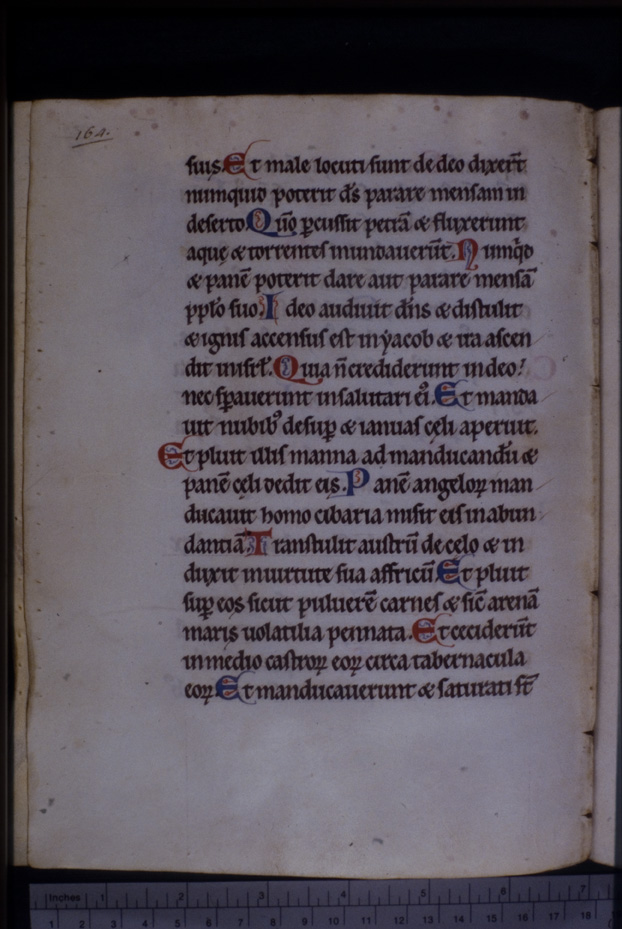 164.
suis. Et male locuti sunt de deo dixer̄t
numquid poterit d̄s parare mensam in
deserto. Qm̄o ꝑcussit petrā & fluxerunt
aquę & torrentes inundauerūt. Numq̇d
& panē poterit dare aut parare mensā
pplo̅ suo. Ideo audiuit dn̄s & distulit
& ignis accensus est in ẏacob & ira ascen
dit in isrl̄. Quia n̄ crediderunt in deo!
nec sꝑauerunt in salutari ei᾽. Et manda
uit nubib᾽ desuꝑ & ianuas cęli aperuit.
Et pluit illis manna ad manducandū &
panē cęli dedit eis. Panē angeloꝝ man
ducauit homo cibaria misit eis in abun
dantiā. Transtulit austrū de celo & in
duxit in uirtute sua affricū. Et pluit
suꝑ eos sicut puluerē carnes & sic̄ arenā
maris uolatilia pennata. Et ceciderūt
in medio castroꝝ eoꝝ circa tabernacula
eoꝝ. Et manducauerunt & saturati st̄
Inches 1 2 3 4 5 6 7
1 2 3 4 5 6 7 8 9 10 11 12 13 14 15 16 17 18